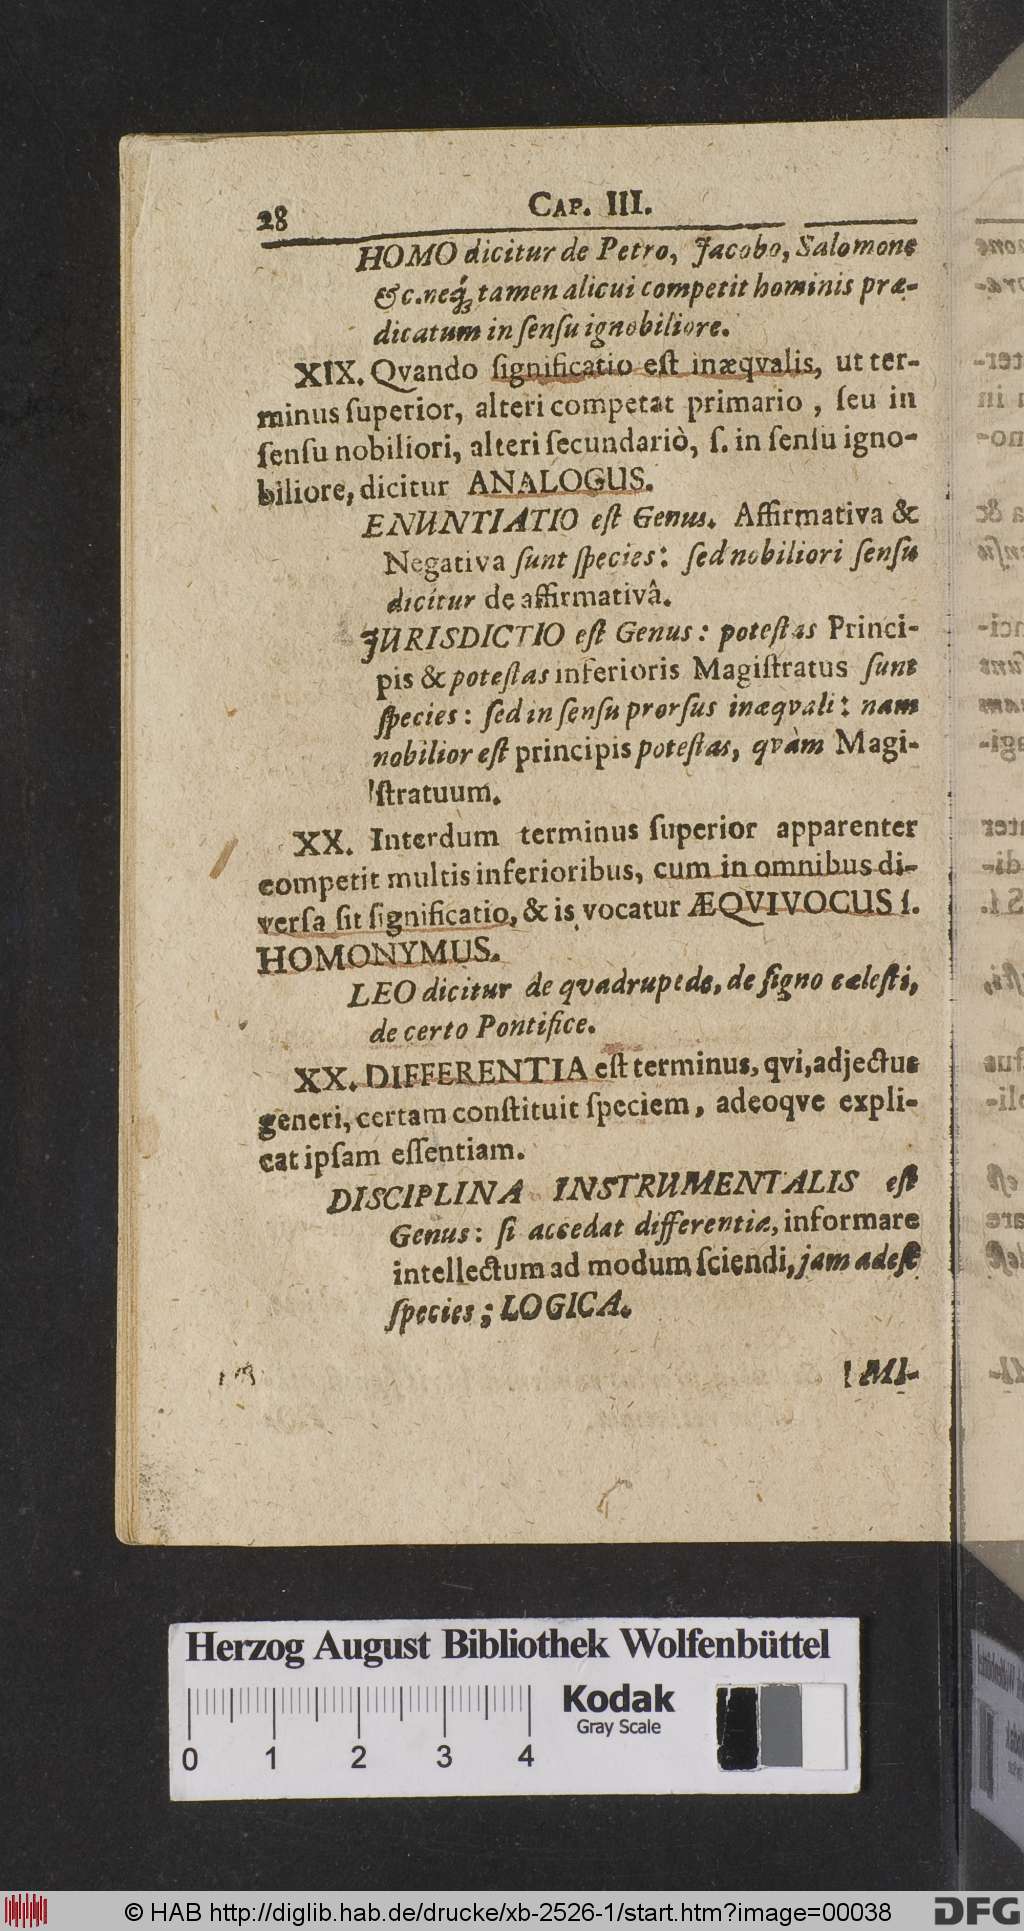 28 CAP. III.
HOMO dicitur de Petro, Jacobo, Salomone
&c. neq́₃ tamen alicui competit hominis præ-
dicatum in ſenſu ignobiliore.
XIX. Qvando ſignificatio eſt inæqvalis, ut ter-
minus ſuperior, alteri competat primario, ſeu in
ſenſu nobiliori, alteri ſecundariò, ſ. in ſenſu igno-
biliore, dicitur ANALOGUS.
ENUNTIATIO eſt Genus. Affirmativa &
Negativa ſunt ſpecies: ſed nobiliori ſenſu
dicitur de affirmativâ.
JURISDICTIO eſt Genus: poteſtas Princi-
pis & poteſtas inferioris Magiſtratus ſunt
ſpecies: ſed in ſenſu prorſus inæqvali: nam
nobilior eſt principis poteſtas, qvàm Magi-
ſtratuum.
XX. Interdum terminus ſuperior apparenter
competit multis inferioribus, cum in omnibus di-
verſa ſit ſignificatio, & is vocatur ÆQVIVOCUS ſ.
HOMONYMUS.
LEO dicitur de qvadrupede, de ſigno cæleſti,
de certo Pontifice.
XX. DIFFERENTIA eſt terminus, qvi, adjectus
generi, certam conſtituit ſpeciem, adeoqve expli-
cat ipſam eſſentiam.
DISCIPLINA INSTRUMENTALIS eſt
Genus: ſi accedat differentiæ, informare
intellectum ad modum ſciendi, jam adeſt
ſpecies; LOGICA.
MI-
Herzog August Bibliothek Wolfenbüttel
0 1 2 3 4
Kodak
Gray Scale
© HAB http://diglib.hab.de/drucke/xb-2526-1/start.htm?image=00038
DFG